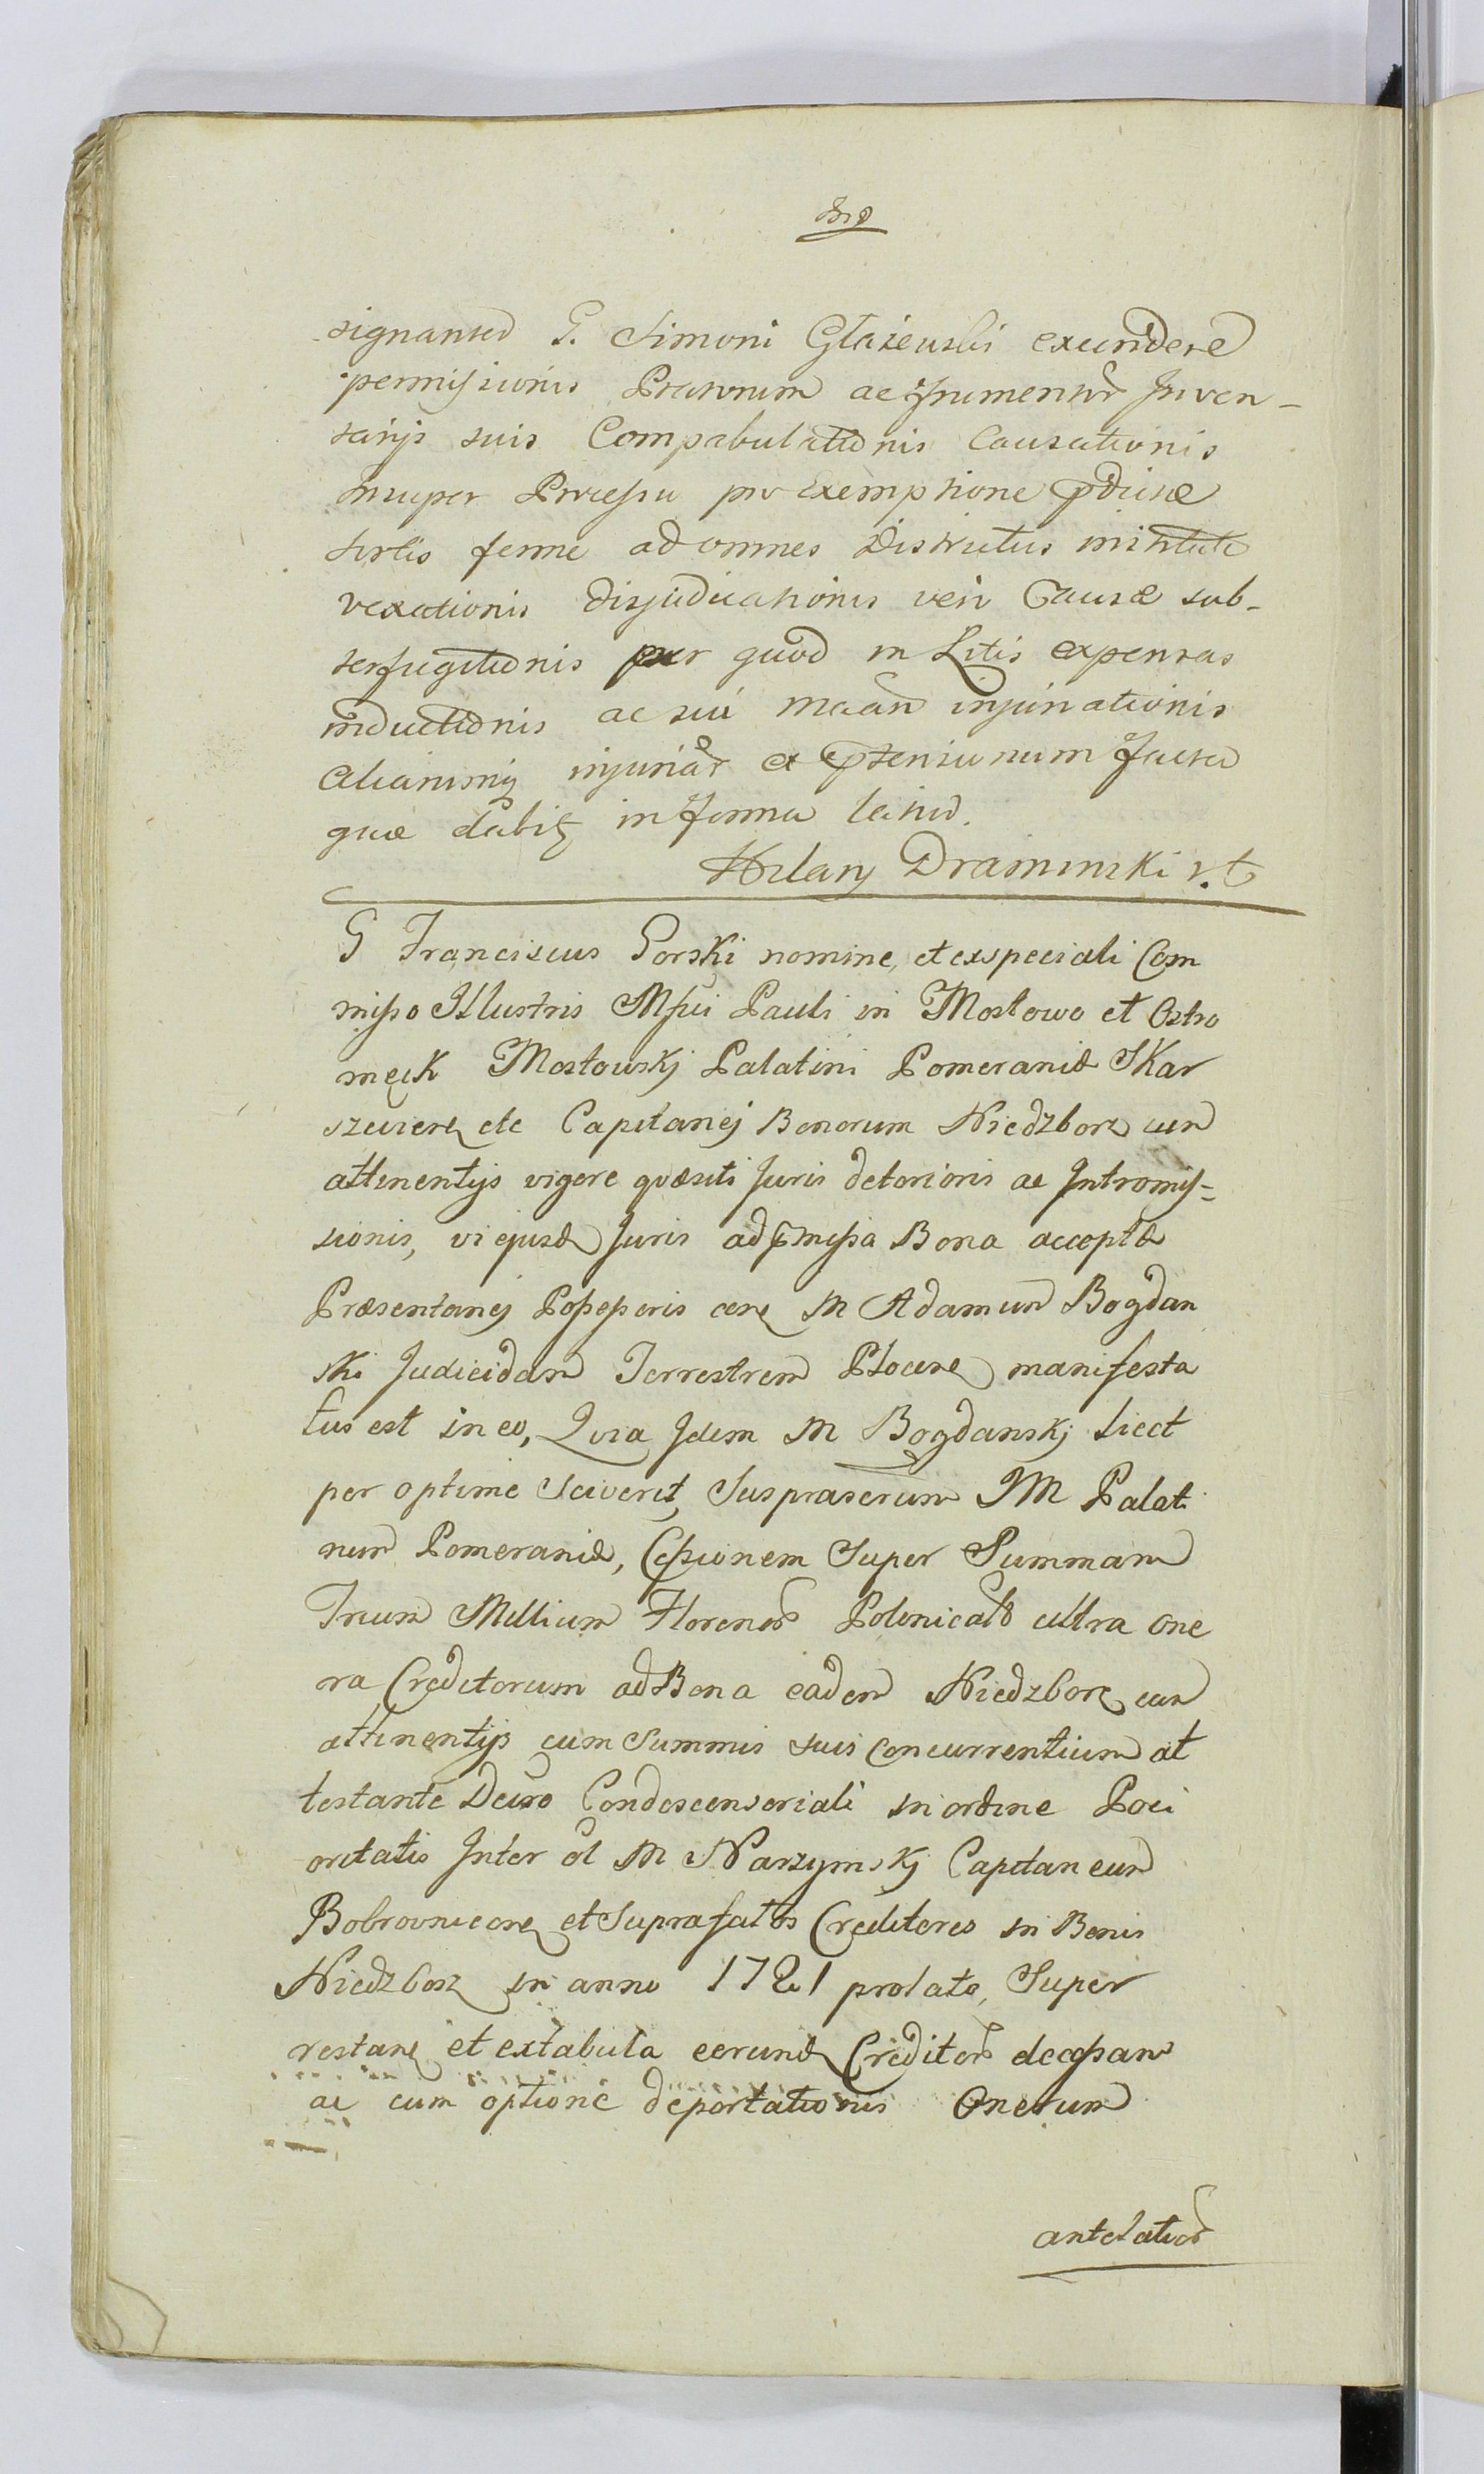 signanter G. Simoni Głażewski excundere
permissionis Pratorum ac frumentor Inven-
tarijs suis Compabulationis Causationis
insuper Processu pro Exemptione
sortis ferme ad omnes Districtus instituti
vexationis disjudicationis veri Causæ sub-
terfugitionis per quod in Litis expensas
inductionis ac sui injurationis
Aliarumq injuriar et facta
quæ dabit in forma latius.
Hilary Dramiński
G Franciscus Gorski nomine, et ex speciali Com
misso Illustris Mfici Pauli in Mostowo et Ostro
męck Mostowskj Palatini Pomeraniæ Skar
szewien etc Capitanej Bonorum Niedzborz cum
attinentijs vigore quæsiti Juris detorioris ac Intromis-
sionis, vi ejusd Juris ad pmissa Bona acceptæ
Præsentanej Possessoris con M Adamum Bogdan
ski Judicidam Terrestrem Plocen manifesta
tus est in eo, Quia Idem M Bogdanskj licet
per optime sciverit, JM Palati
num Pomeraniæ, Cessionem Super Summam
Trium Millium Florenor Polonicalr ultra One
ra Creditorum ad Bona eadem Niedzborz cum
attinentijs cum Summis suis concurrentium at
testante Decro Condescensoriali in ordine Poci
oritatis Inter ol M Narzymskj Capitaneum
Bobrovnicen et Suprafatos Creditores in Bonis
Niedzborz in anno 1721 prolato, Super
restan et ex tabula eorund Creditor
ac cum optione deportationis Onerum
antelatior